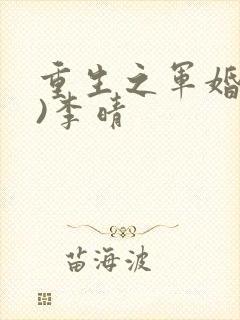 重生之军婚
)李晴
苗海波